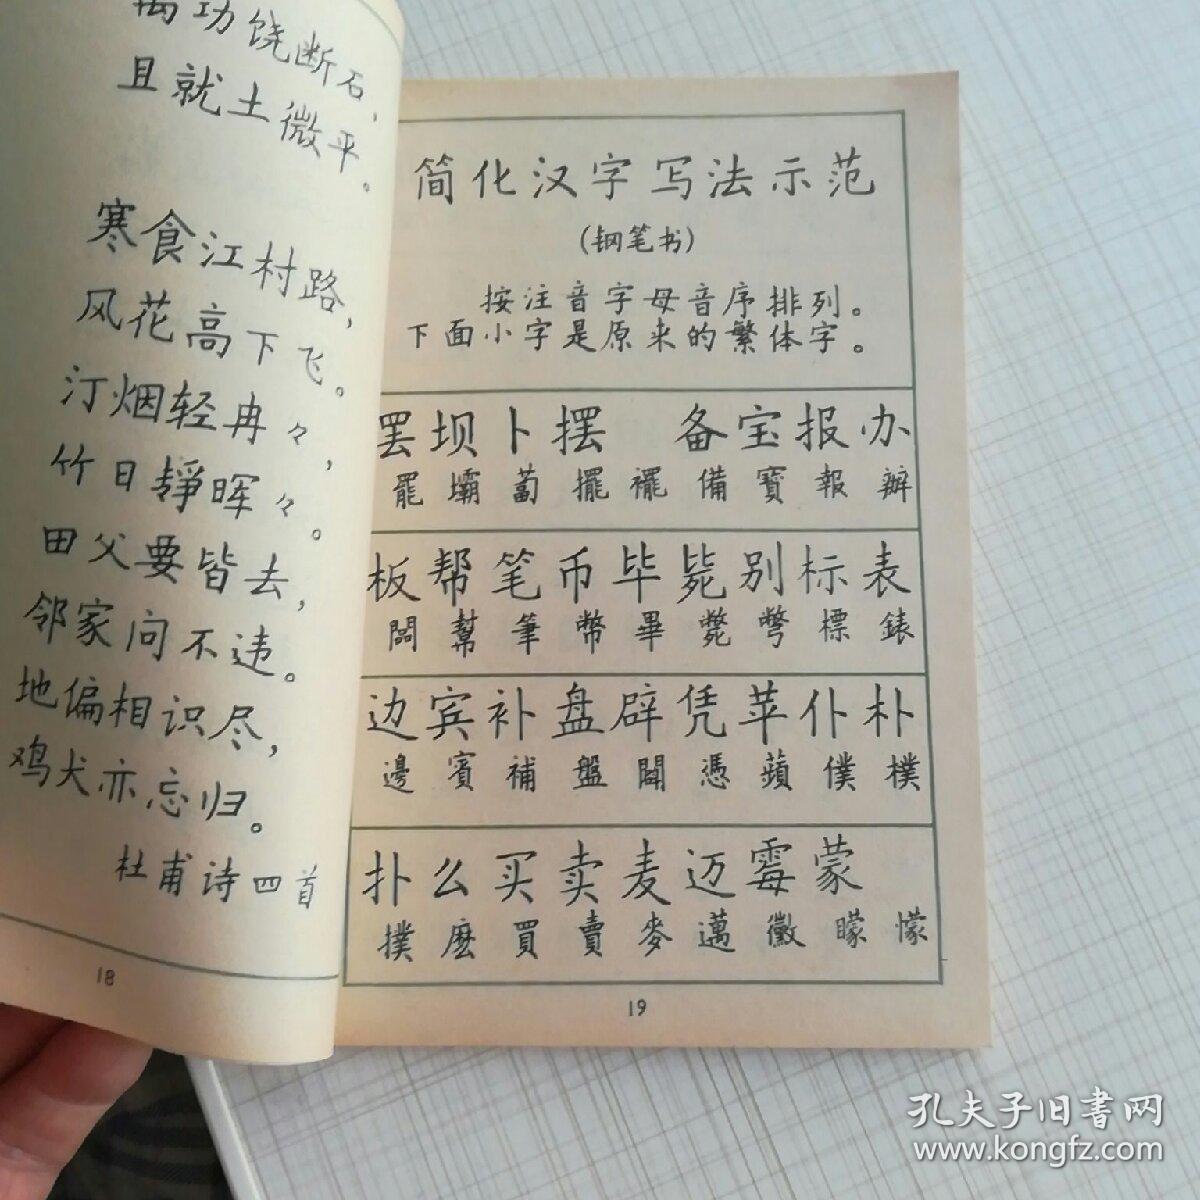 禹功饶断石，
且就土微平。
寒食江村路，
风花高下飞。
汀烟轻冉々，
竹日静晖々。
田父要皆去，
邻家问不违。
地偏相识尽，
鸡犬亦忘归。
杜甫诗四首
18
简化汉字写法示范
(钢笔书)
按注音字母音序排列。
下面小字是原来的繁体字。
罢坝卜摆 备宝报办
罷壩蔔擺襬備寶報辦
板帮笔币毕毙别标表
闆幫筆幣畢斃彆標錶
边宾补盘辟凭苹仆朴
邊賓補盤闢憑蘋僕樸
扑么买卖麦迈霉蒙
撲麽買賣麥邁黴矇懞
19
孔夫子旧書网
www.kongfz.com